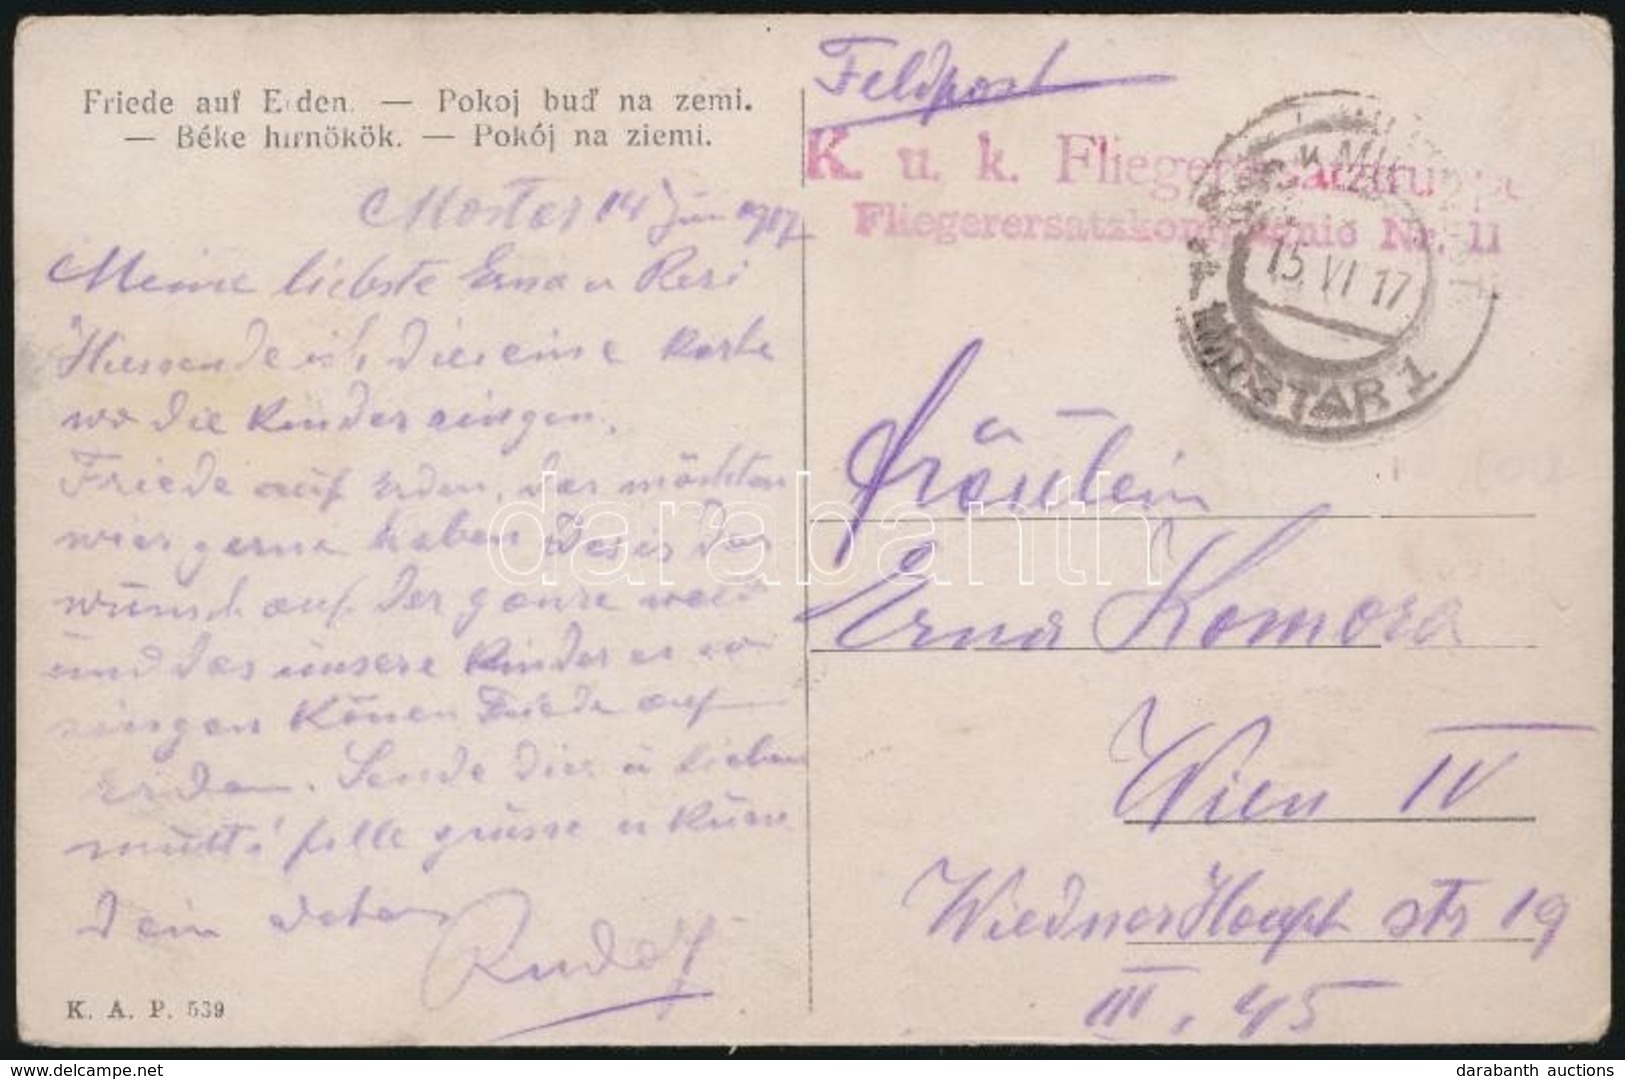 Friede auf Erden. — Pokoj buď na zemi.
— Béke hírnökök. — Pokój na ziemi.
Mostar 14 Juni 1917
Meine liebste Erna u Resi
Hiessende ich dier eine Karte
wo die Kinder singen.
Friede auf Erden, das möchten
wier gerne haben Des is der
wunsch auf der ganze welt
und das unsere Kinder es so
singen Können Friede auf
Erden. Sende dier u lieben
mutti grüsse u Küsse
Dein
Rudolf
K. A. P. 539
Feldpost
K. u. k. Fliegerersatztruppe
Fliegerersatzkompanie Nr. 11
15. VI 17
MOSTAR 1
Fräulein
Erna Komora
Wien IV
Wiedner Haupt str 19
III, 45
darabanth
delcampe.net
darabanth auctions